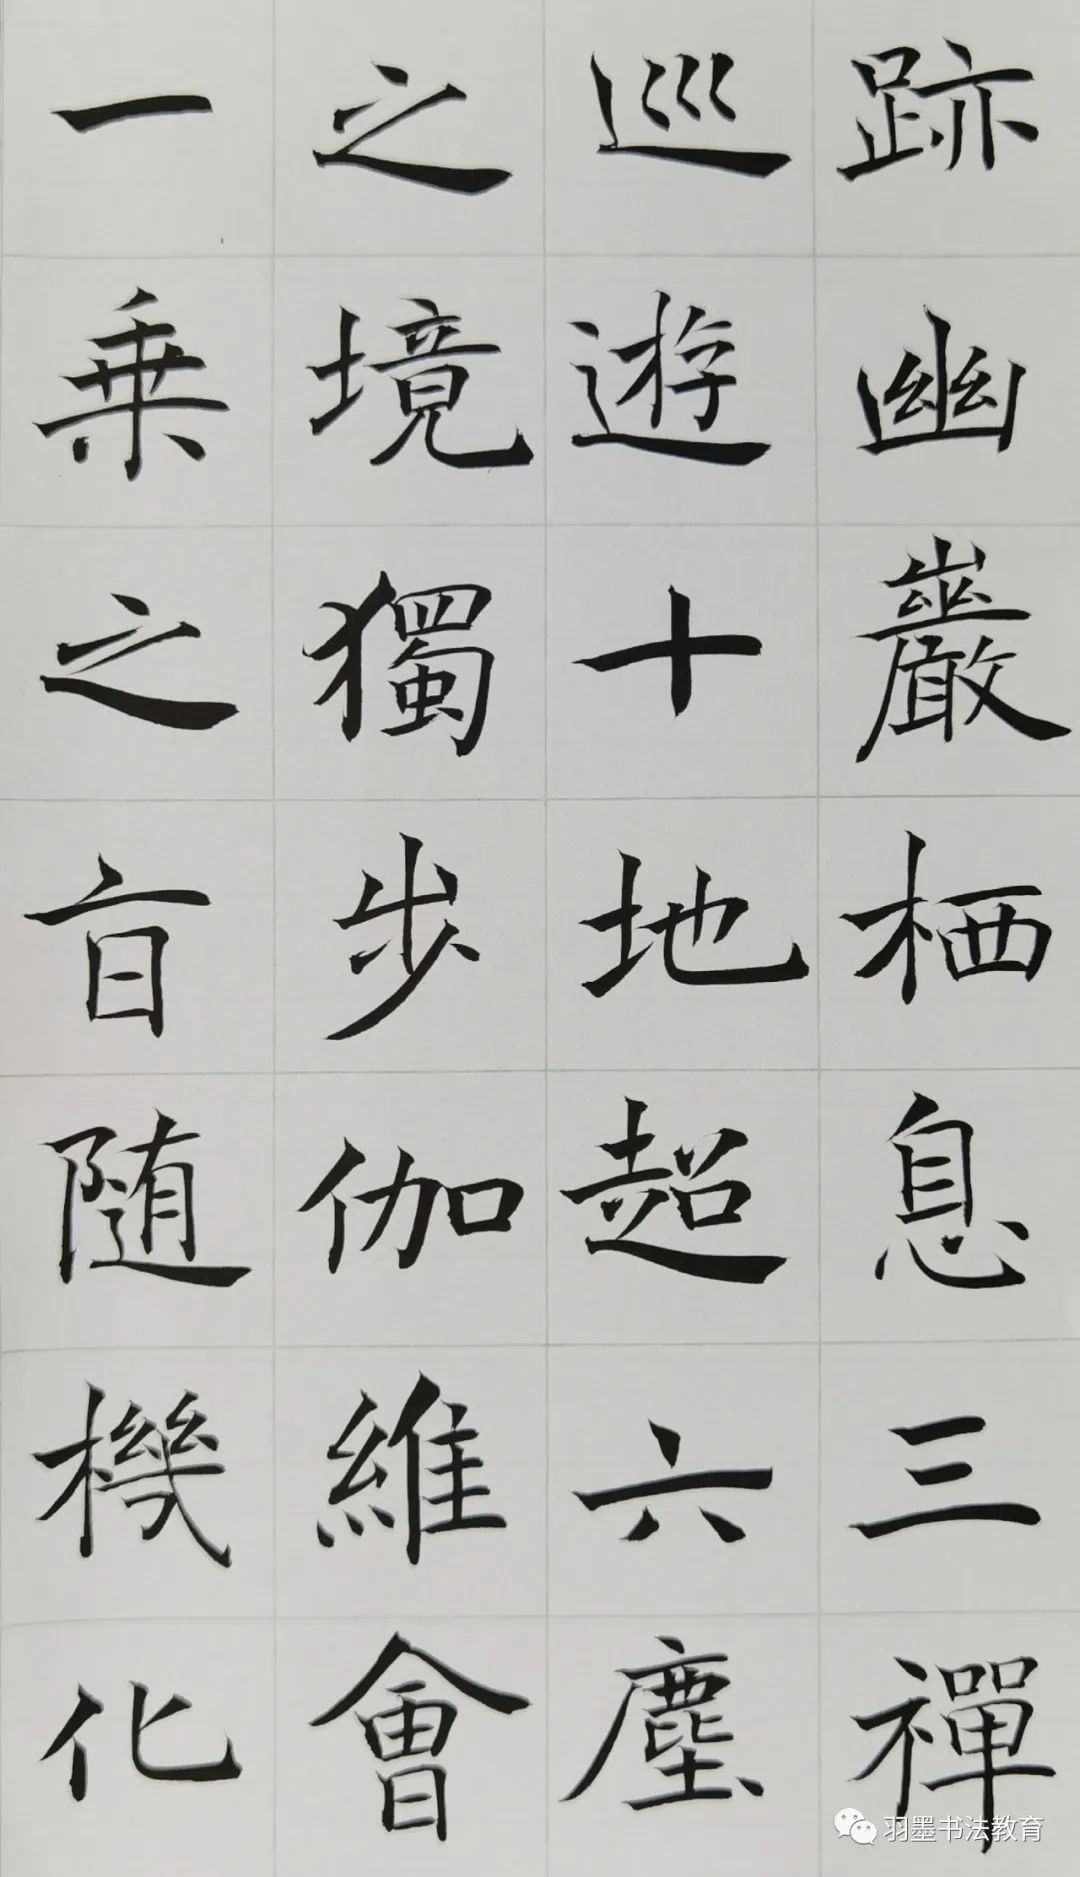 跡幽巖栖息三禪
巡遊十地超六塵
之境獨步伽維會
一乗之旨随機化
羽墨书法教育